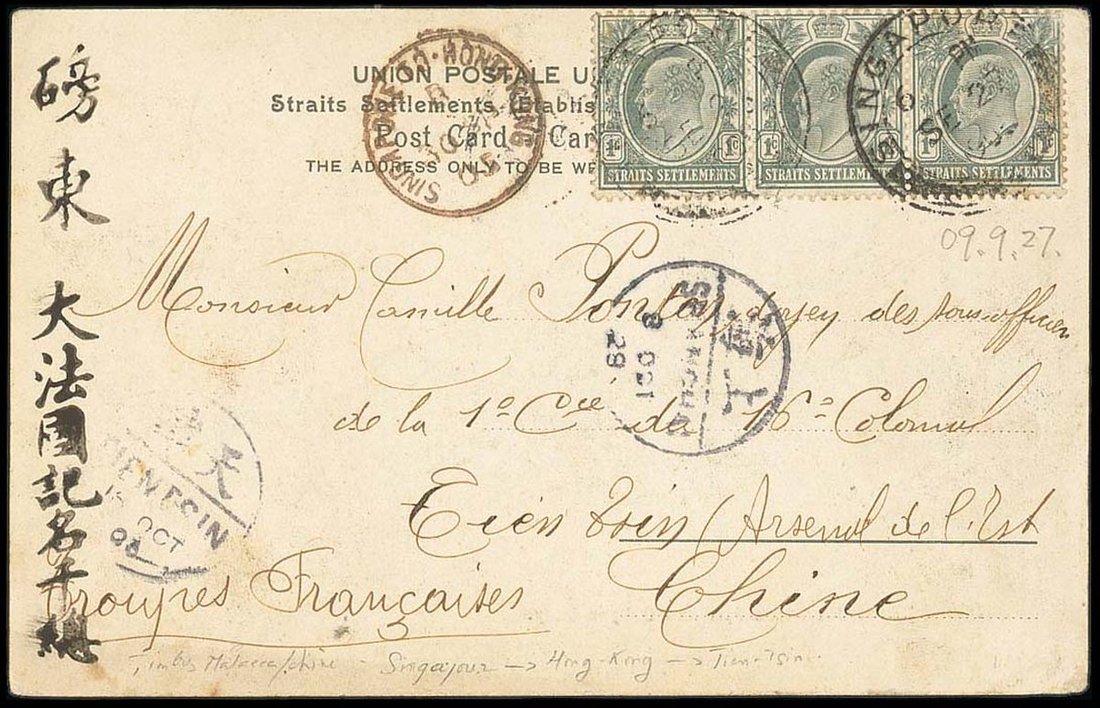 UNION POSTALE U
Straits Settlements (Etablis
Post Card - Car
THE ADDRESS ONLY TO BE WR
SINGAPORE TO HONG KONG
1c 1c
STRAITS SETTLEMENTS
1c
1c 1c
STRAITS SETTLEMENTS
SINGAPORE
SE 2
09.9.27.
磅東 大法國記名千總
Monsieur Camille
des sous-officiers
de la 1e Cie du 16e Colonial
Tien Tsin (Arsenal de l'Est
Troupes Françaises
Chine
上海
SHANGHAI
8 OCT
天
TIENTSIN
OCT
Timbres Malacca/chine - Singapour -> Hong-Kong -> Tien-Tsin